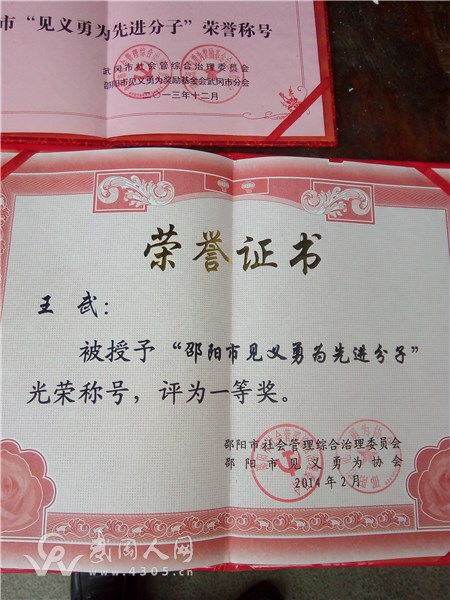 市“见义勇为先进分子”荣誉称号
武冈市社会管综合治理委员会
邵阳市见义勇为奖励基金会武冈市分会
二〇一三年十二月
荣誉证书
王武：
被授予“邵阳市见义勇为先进分子”
光荣称号，评为一等奖。
邵阳市社会管理综合治理委员会
邵阳市见义勇为协会
2014年2月
武冈人网
www.4305.cn